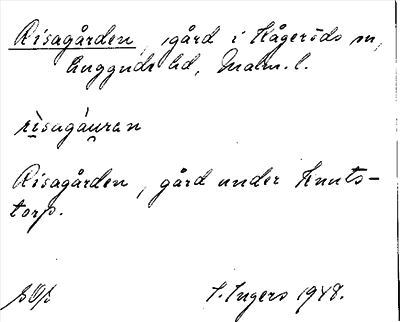 Risagården, gård i Kågeröds sn,
Luggude hd, Malm. l.
rìsagáu̯ran
Risagården, gård under Knuts-
torp.
I. Ingers 1948.